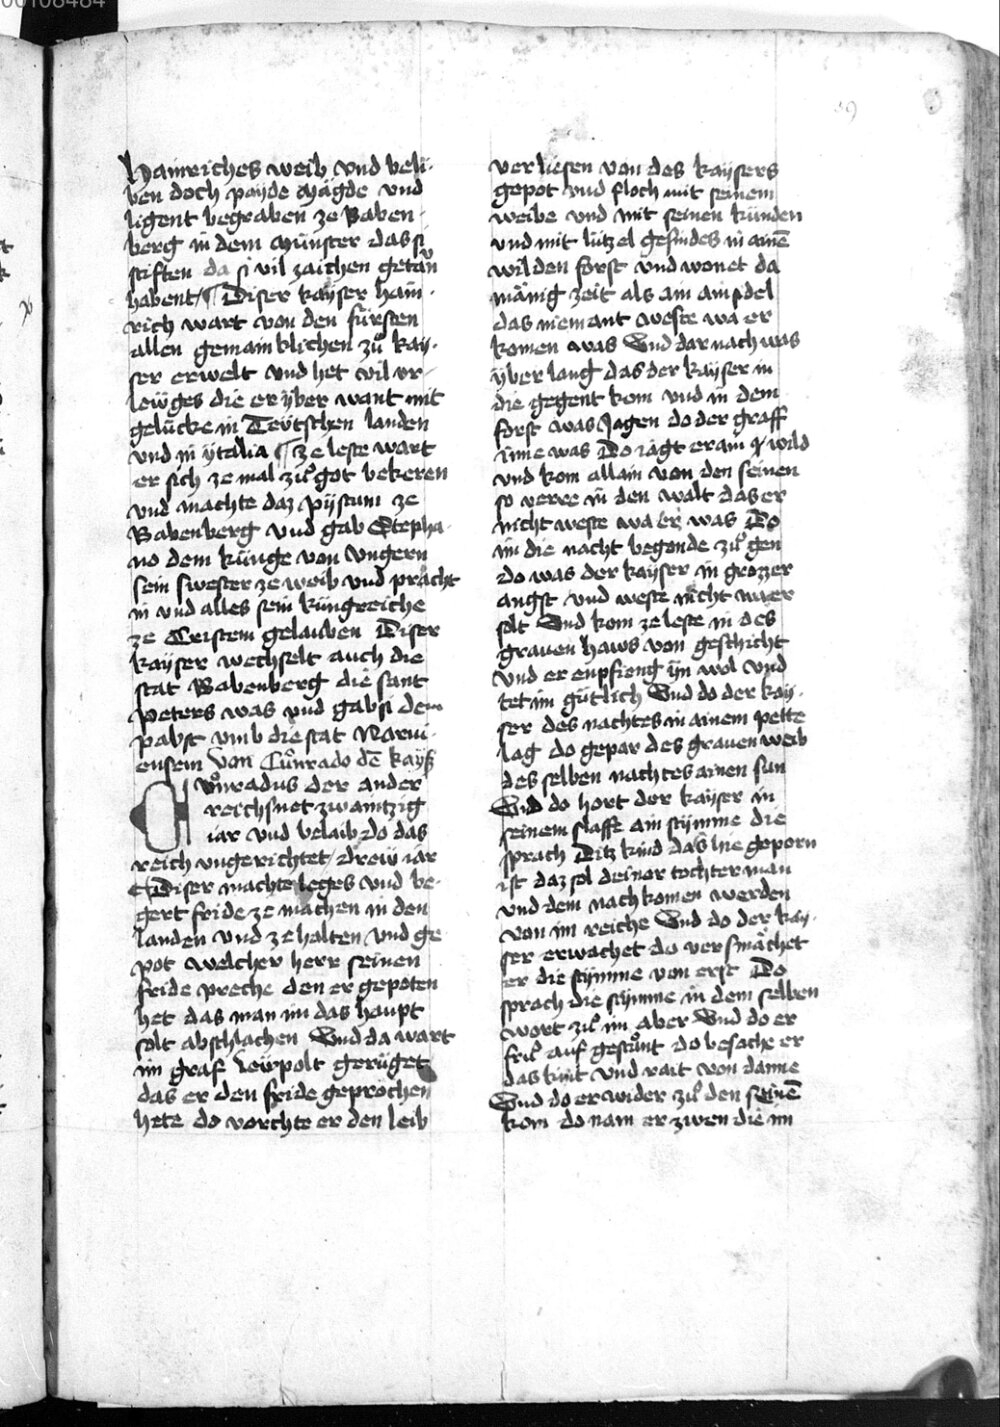 00108484
59
Hainriches weib vnd beli-
ben doch payde mägde vnd
ligent begraben ze Baben-
berg in dem münster das si
stiften da si vil zaichen getan
habent ¶ Diser kayser hain-
rich wart von den fürsten
allen gemainklichen zů kay-
ser erwelt vnd het vil vr-
leüges die er über want mit
gelücke in Teütschen landen
vnd in ytalia ¶ ze leste wart
er sich ze mal zů got bekeren
vnd machte daz pystum ze
Babenberg vnd gab Stepha-
no dem künge von vngern
sein swester ze weib vnd prächt
in vnd alles sein küngreiche
ze Cristem gelauben Diser
kayser wechselt auch die
stat Babenberg die sant
peters was vnd gab si dem
pabst vmb die stat Narni-
ensem Von Cůnrado dē kayß
Cůnradus der ander
reichsnet zwaintzig
iar vnd belaib do das
reich vngerichtet dreiü iar
¶ Diser machte leges vnd be-
gert fride ze machen in den
landen vnd ze halten vnd ge-
pot welcher herr seinen
fride preche den er gepoten
het das man im das haupt
solt abschlachen Vnd da wart
im graf Leüpolt gerüget
das er den fride geprochen
hete do vorchte er den leib
verliesen von des kaysers
gepot vnd floch mit seinem
weibe vnd mit seinen künden
vnd mit lützel gesindes in ainē
wilden forst vnd wonet da
mänig zeit als ain ainsidel
das niemant weste wa er
komen was Vnd dar nach was
über lang das der kayser in
die gegent kom vnd in dem
forst was Jagen do der graff
inne was Do iagt er ain wild
vnd kom allain von den seinen
so verre in den walt das er
nicht weste wa er was Do
im die nacht begonde zů gen
do was der kayser in grozzer
angst vnd weste nicht wa er
solt Vnd kom ze leste in des
grauen haws von geschicht
vnd er enpfieng yn wol vnd
tet im gütlich Vnd do der kay-
ser des nachtes in ainem pette
lag do gepar des grauen weib
des selben nachtes ainen sun
Vnd do hort der kayser in
seinem slaffe ain stymme die
sprach Ditz kind das hie geporn
ist daz sol deiner tochter man
vnd dem nach komen werden
von im reiche Vnd do der kay-
ser erwachet do versmächet
er die stymme von erst Do
sprach die stymme in dem selben
wort zů im aber Vnd do er
frů auf gestůnt do besache er
das kint vnd rait von danne
Vnd do er wider zů den seinē
kom do nam er zwen die im